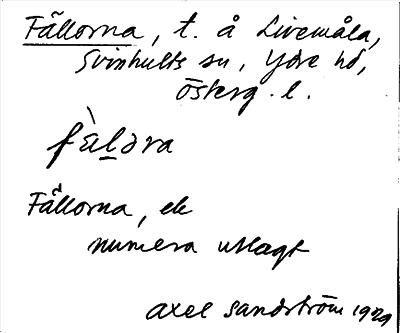 Fällorna, t. å Livemåla,
Svinhults sn, Ydre hd,
Österg. l.
fàl̲əra
Fällorna, ek
numera utlagt
Axel Sandström 1929